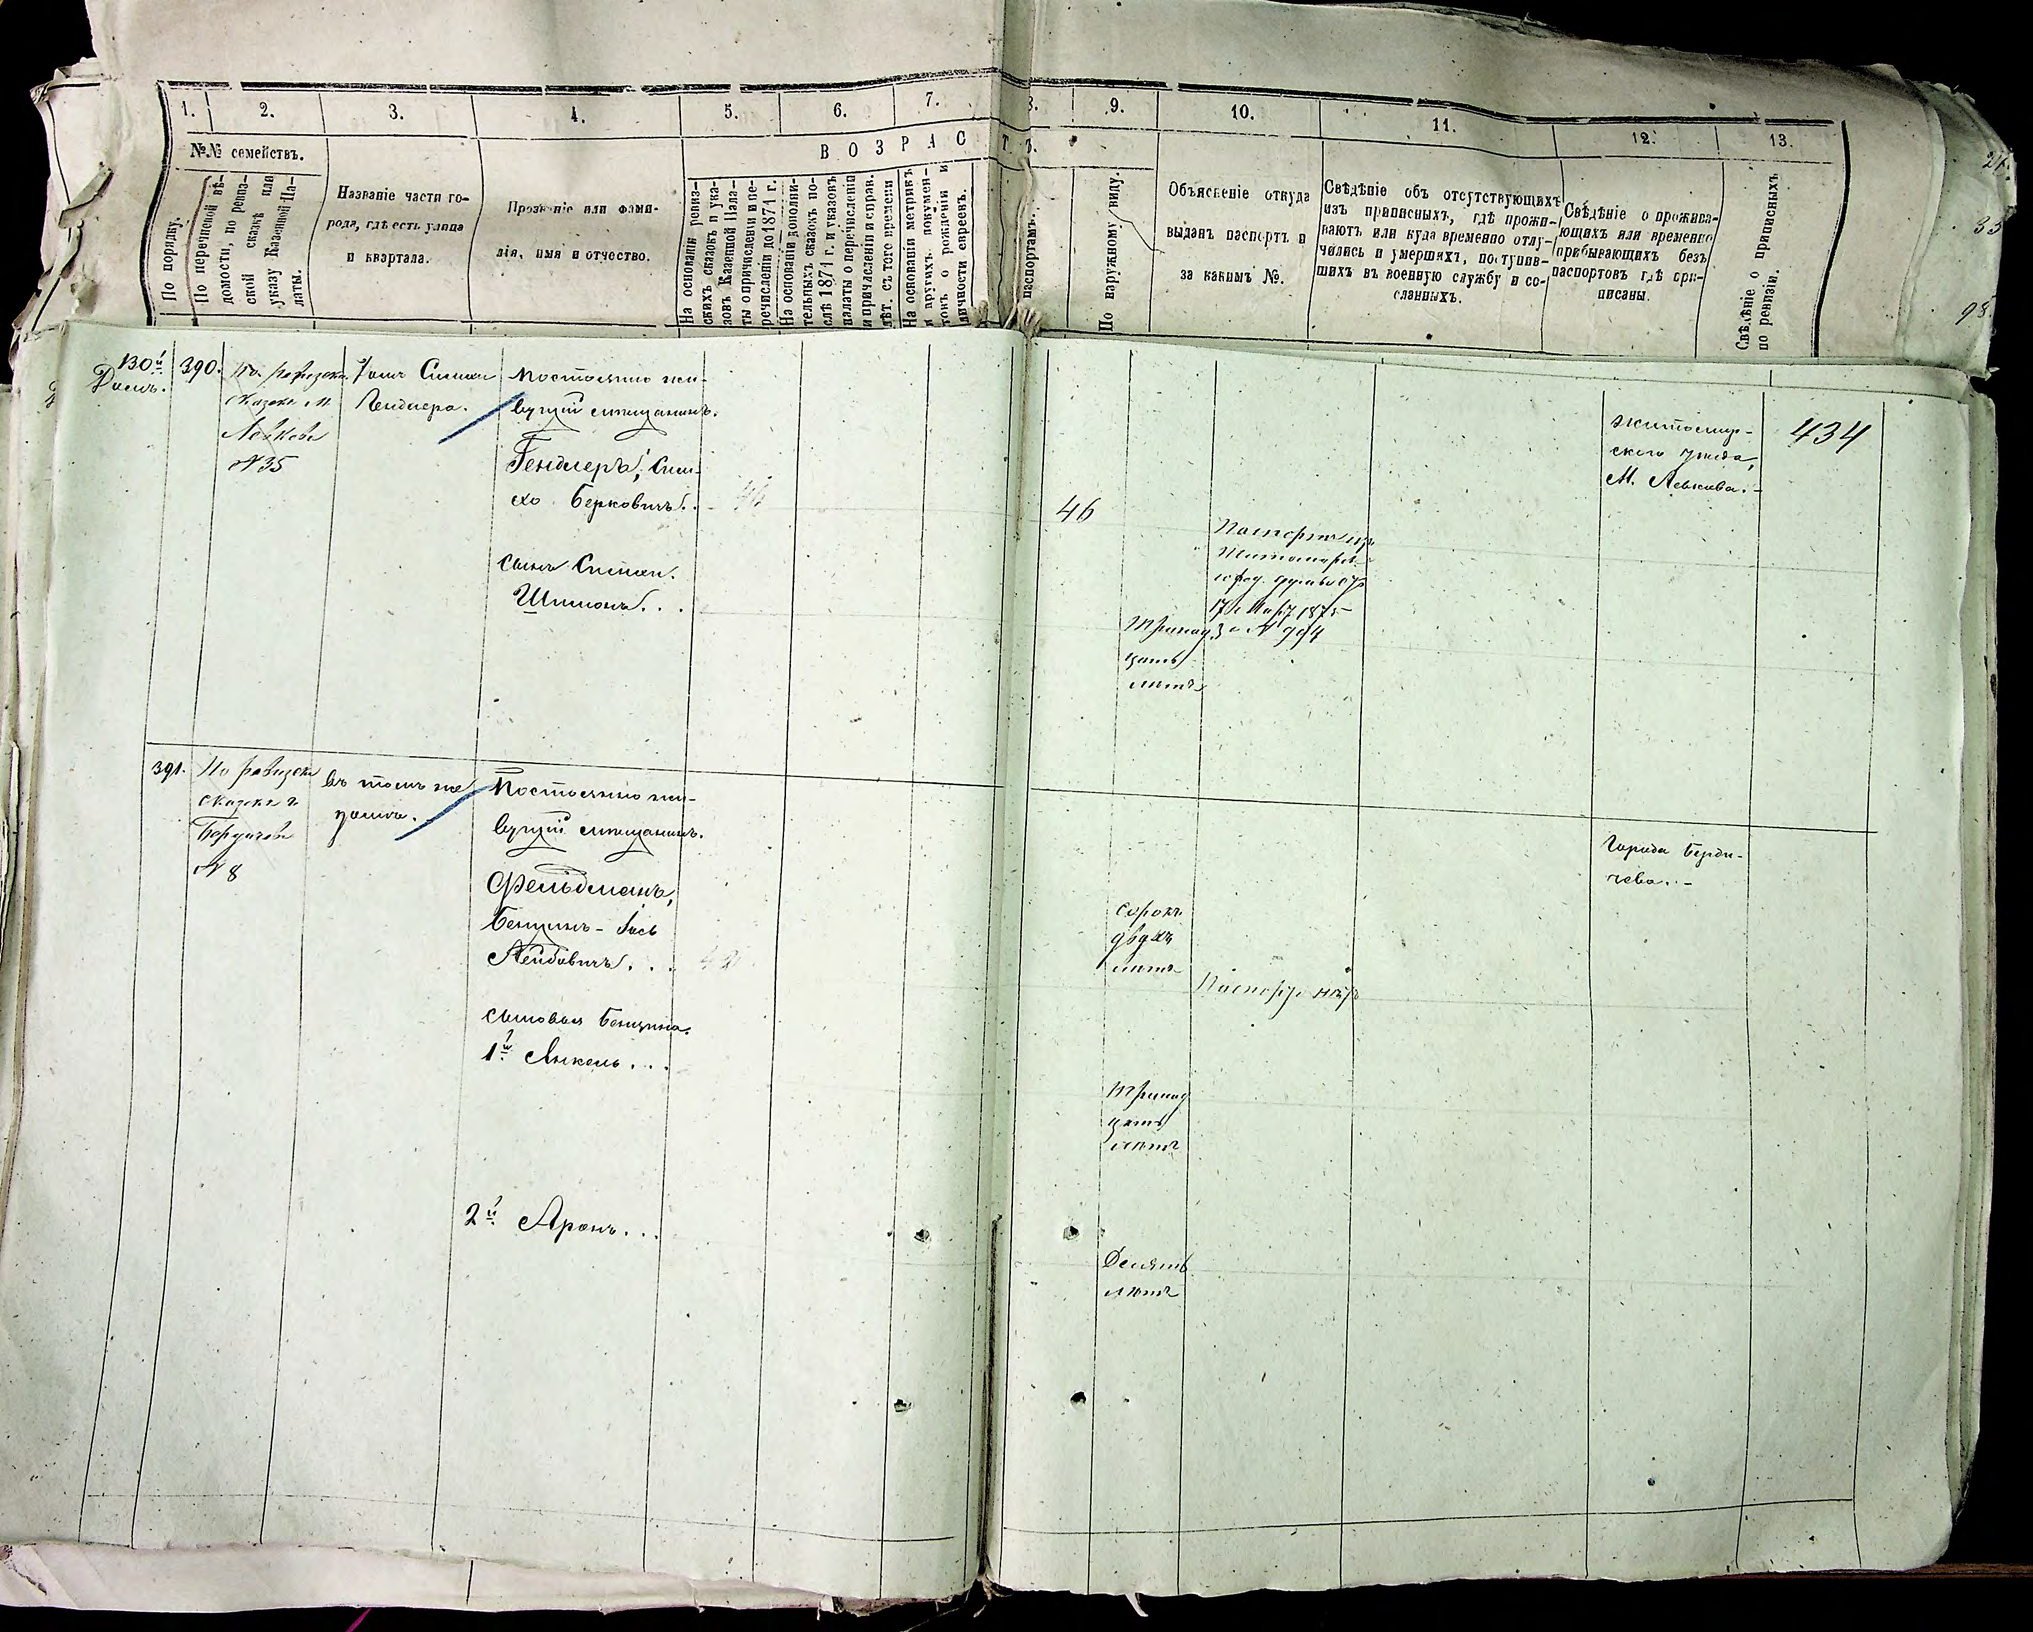 1.
2.
3.
4.
5.
6.
7.
8.
9.
10.
11.
12.
13.
№№ семействъ.
ВОЗРАСТЪ.
По порядку.
По перечневой вѣ-
домости, по ревиз-
ской сказкѣ или
указу Казенной Па-
латы.
Названіе части го-
рода, гдѣ есть улица
и квартала.
Прозваніе или фами-
лія, имя и отчество.
На основаніи ревиз-
скихъ сказокъ и ука-
зовъ Казенной Пала-
ты о причисленіи и пе-
речисленіи до 1874 г.
На основаніи дополни-
тельныхъ сказокъ по-
слѣ 1874 г. и указовъ
палаты о перечисленіи
и причисленіи и справ.
лѣт. съ того времени
На основаніи метрикъ
и другихъ докумен-
товъ о рожденіи и
личности евреевъ.
паспортамъ.
По наружному виду.
Объясненіе откуда
выданъ паспортъ и
за какимъ №.
Свѣдѣніе объ отсутствующихъ
изъ приписныхъ, гдѣ прожи-
ваютъ или куда временно отлу-
чились и умершихъ, поступив-
шихъ въ военную службу и со-
сланныхъ.
Свѣдѣніе о прожива-
ющихъ или временно
прибывающихъ безъ
паспортовъ гдѣ при-
писаны.
Свѣдѣніе о приписныхъ
по ревизіи.
130й
Домъ.
390.
По ревизск.
сказкѣ м.
Левкова
№ 35
Домъ Симхи
Гендлера.
Постоянно жи-
вущій мѣщанинъ.
Гендлеръ, Сим-
хо Берковичъ.
44
46
Житомир-
скаго уѣзда,
М. Левкова.-
434
сынъ Симхи.
Шимонъ...
17 1875
за № 994
Тринад
цать
лѣтъ
391.
По ревизск
сказкѣ г.
Бердичева
№ 8
Въ томъ же
домѣ.
Постоянно жи-
вущій мѣщанинъ.
Фельдманъ,
Бенцинъ-
Лейбовичъ...
сорокъ
двухъ
лѣтъ
Города Берди-
чева.-
сыновья Бенцина.
1й Янкель...
Тринад
цать
лѣтъ
2й Аронъ...
Десять
лѣтъ